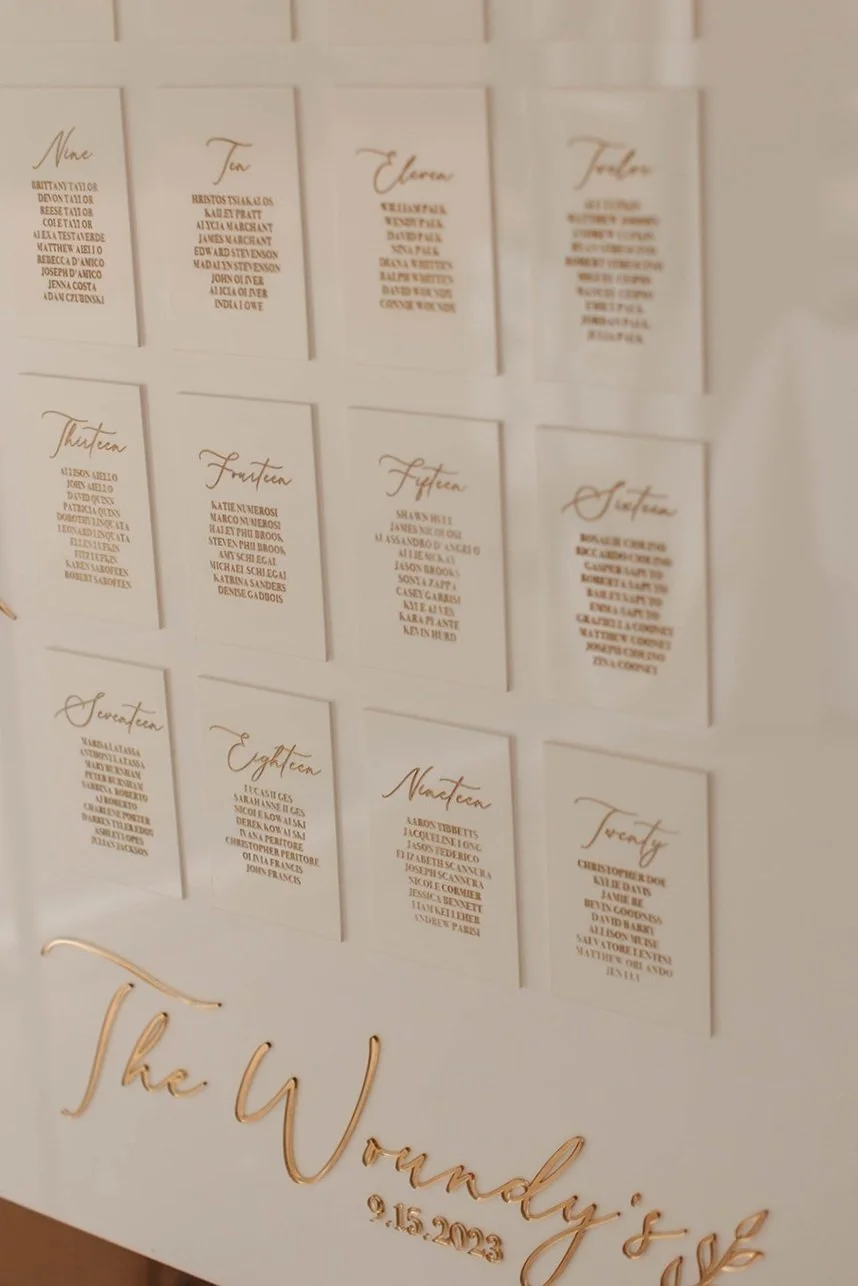 Nine
BRITTANY TAYLOR
DEVON TAYLOR
REESE TAYLOR
COLE TAYLOR
ALEXA TESTAVERDE
MATTHEW AIELLO
REBECCA D'AMICO
JOSEPH D'AMICO
JENNA COSTA
ADAM CZUBINSKI
Ten
HRISTOS TSIAKALOS
KAILEY PRATT
ALYCIA MARCHANT
JAMES MARCHANT
EDWARD STEVENSON
MADALYN STEVENSON
JOHN OLIVER
ALICIA OLIVER
INDIA LOWE
Eleven
WILLIAM PAUK
WENDY PAUK
DAVID PAUK
NINA PAUK
DIANA WHITTEN
RALPH WHITTEN
DAVID WOUNDY
CONNIE WOUNDY
Twelve
MATTHEW
ANDREW LUPKIN
ROBERT
EMILY PAUK
JORDAN PAUK
JULIA PAUK
Thirteen
ALLISON AIELLO
JOHN AIELLO
DAVID QUINN
PATRICIA QUINN
DOROTHY LINQUATA
LEONARD LINQUATA
ELLEN LUPKIN
FITZ LUPKIN
KAREN SAROFEEN
ROBERT SAROFEEN
Fourteen
KATIE NUMEROSI
MARCO NUMEROSI
HALEY PHILBROOK
STEVEN PHILBROOK
AMY SCHLEGAL
MICHAEL SCHLEGAL
KATRINA SANDERS
DENISE GADBOIS
Fifteen
SHAWN HULL
JAMES NICOLOSI
ALESSANDRO D'ANGELO
ALLIE MCKAY
JASON BROOKS
SONYA ZAPPA
CASEY GARRISI
KYLE ALVES
KARA PLANTE
KEVIN HURD
Sixteen
ROSALIE CIOLINO
RICCARDO CIOLINO
GASPER SAPUTO
ROBERTA SAPUTO
BAILEY SAPUTO
EMMA SAPUTO
GRAZIELLA COONEY
MATTHEW COONEY
JOSEPH CIOLINO
ZINA COONEY
Seventeen
MARISA LATASSA
ANTHONY LATASSA
MARY BURNHAM
PETER BURNHAM
SABRINA ROBERTO
AJ ROBERTO
CHARLENE PORTER
DARREN TYLER EDDY
ASHLEY LOPES
JULIAN JACKSON
Eighteen
LUCAS ILGES
SARAHANNE ILGES
NICOLE KOWALSKI
DEREK KOWALSKI
IVANA PERITORE
CHRISTOPHER PERITORE
OLIVIA FRANCIS
JOHN FRANCIS
Nineteen
AARON TIBBETTS
JACQUELINE LONG
JASON FEDERICO
ELIZABETH SCANNURA
JOSEPH SCANNURA
NICOLE CORMIER
JESSICA BENNETT
LIAM KELLEHER
ANDREW PARISI
Twenty
CHRISTOPHER DOE
KYLIE DAVIS
JAMIE RE
BEVIN GOODNISS
DAVID BARRY
ALLISON MUISE
SALVATORE LENTINI
MATTHEW ORLANDO
JEN LUI
The Woundy's
9.15.2023